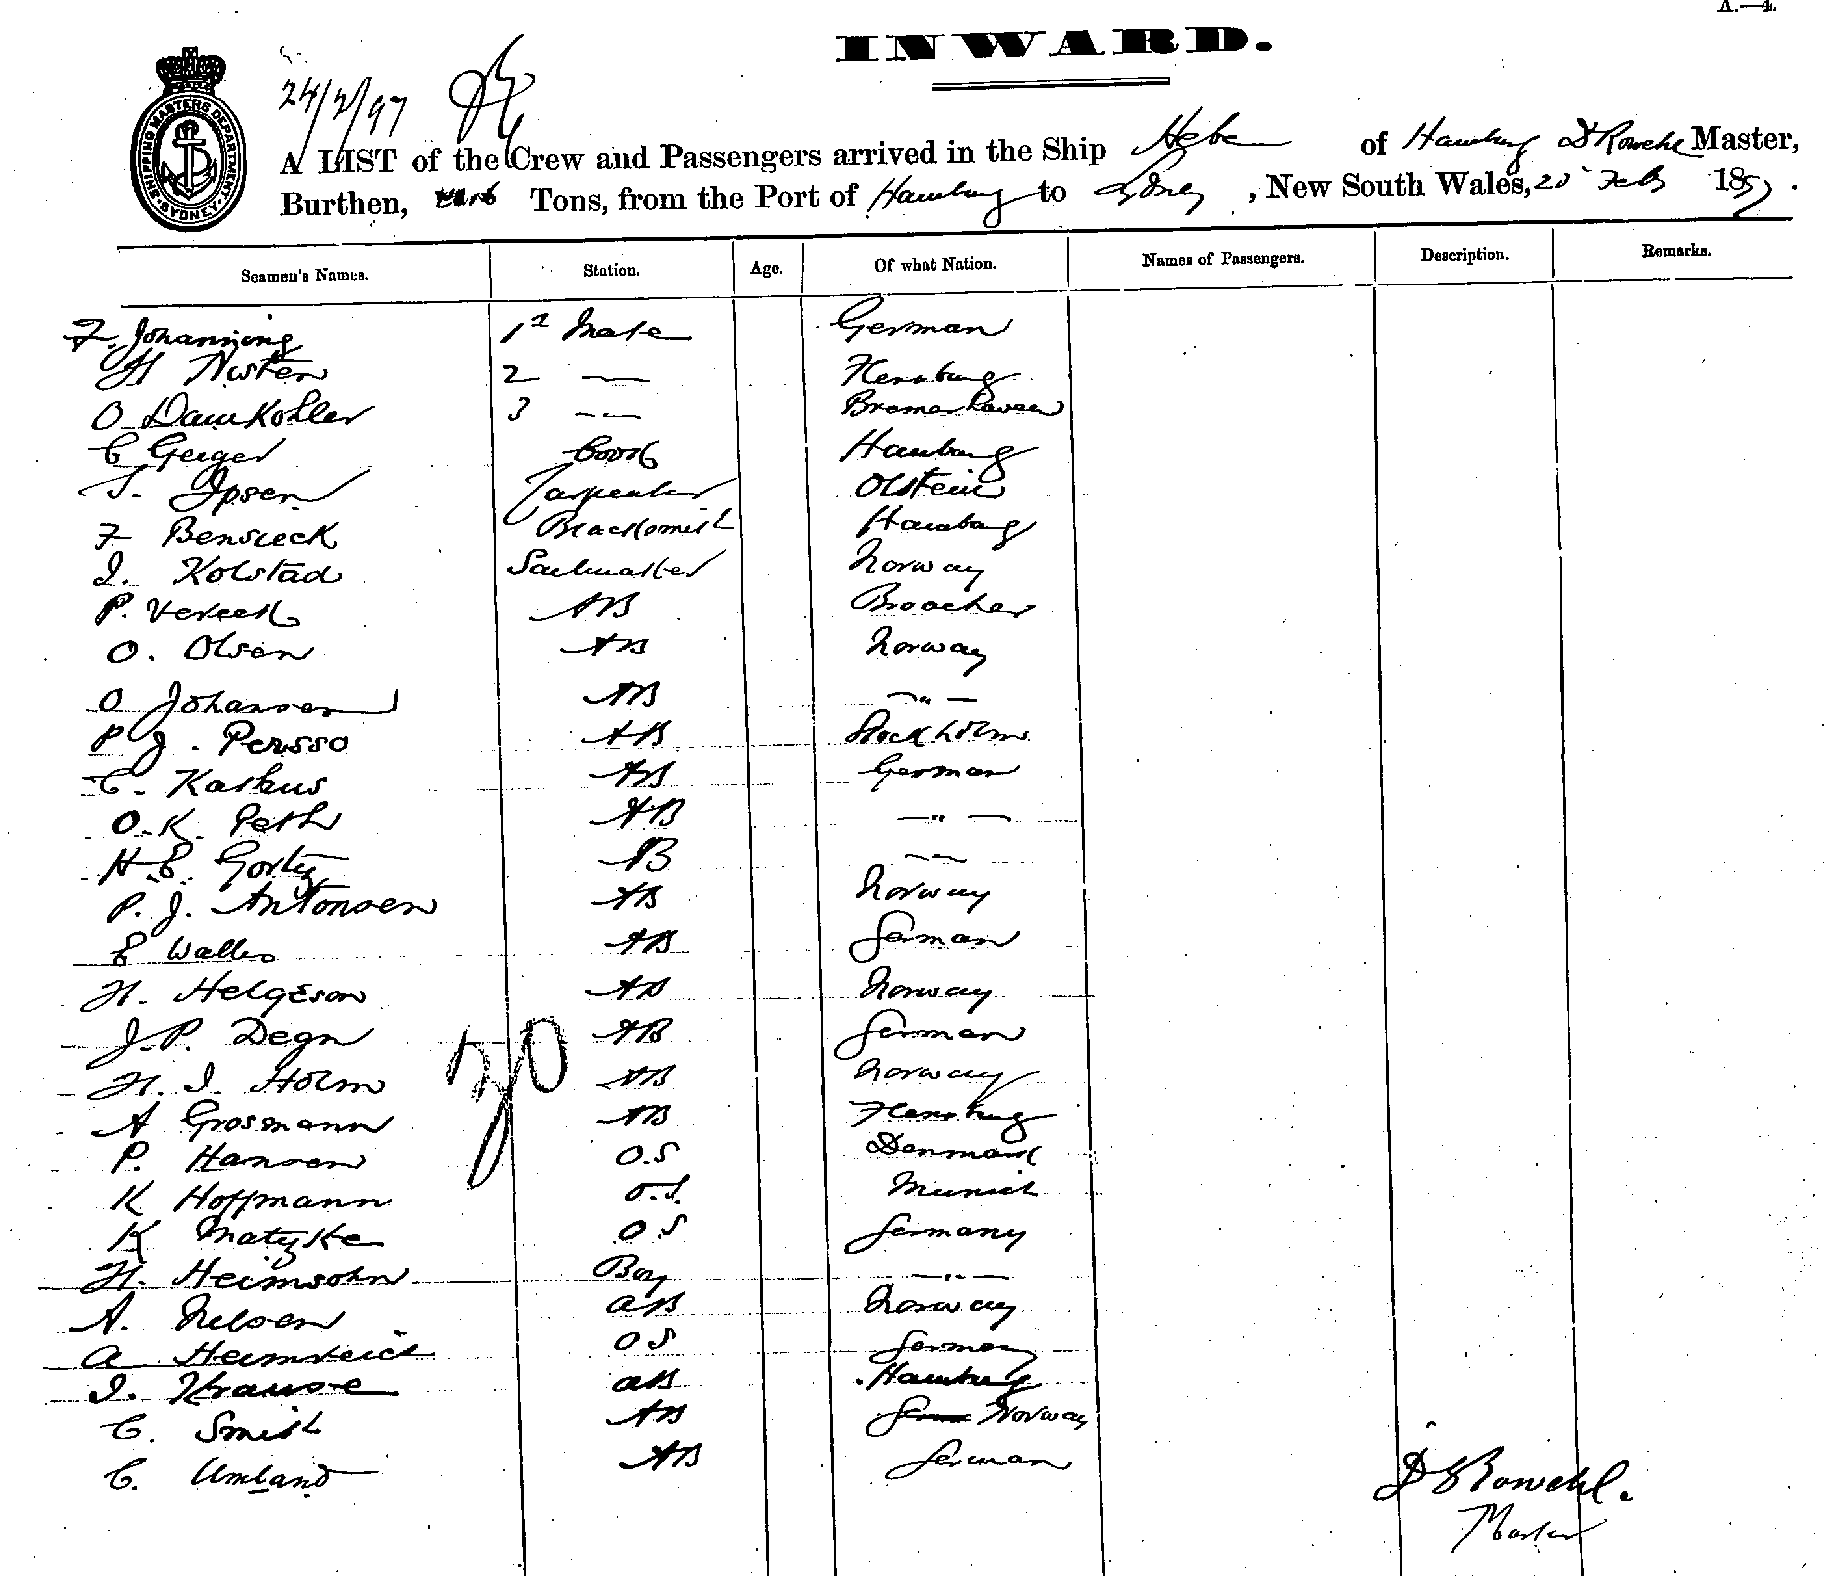 A.—4.
INWARD.
24/2/97
SHIPPING MASTERS DEPARTMENT SYDNEY
A LIST of the Crew and Passengers arrived in the Ship Hebe of Hamburg D Rowehl Master,
Burthen, Tons, from the Port of Hamburg to Sydney, New South Wales, 20 Feb 1897.
Seamen's Names. Station. Age. Of what Nation. Names of Passengers. Description. Remarks.
F. Johanning 1st Mate German
H Nister 2 — Flensburg
O Daukohler 3 — Bremerhaven
C Geiger Cook Hamburg
J. Ipsen Carpenter Olstein
F Bensieck Blacksmith Hamburg
I. Kolstad Sailmaker Norway
P. AB
O. Olsen AB Norway
O Johansen AB —„—
P J. Persso AB Stockholm
C. Kaskus AB German
O. K. Peth AB —„—
H. E. Gortz AB —
P. J. Antonsen AB Norway
E Walles AB German
H. Helgeson AB Norway
J. P. Degn AB German
H. I. Holm AB Norway
A Grosmann AB Flensburg
P. Hansen O.S Denmark
K Hoffmann O.S. Munich
K Matzke O S Germany
H. Heimsohn Boy —„—
A. Nelsen AB Norway
A Heimreich O S Germany
I. Krause AB Hamburg
C. Smith AB Norway
C. Umland AB German
30
D Rowehl.
Master